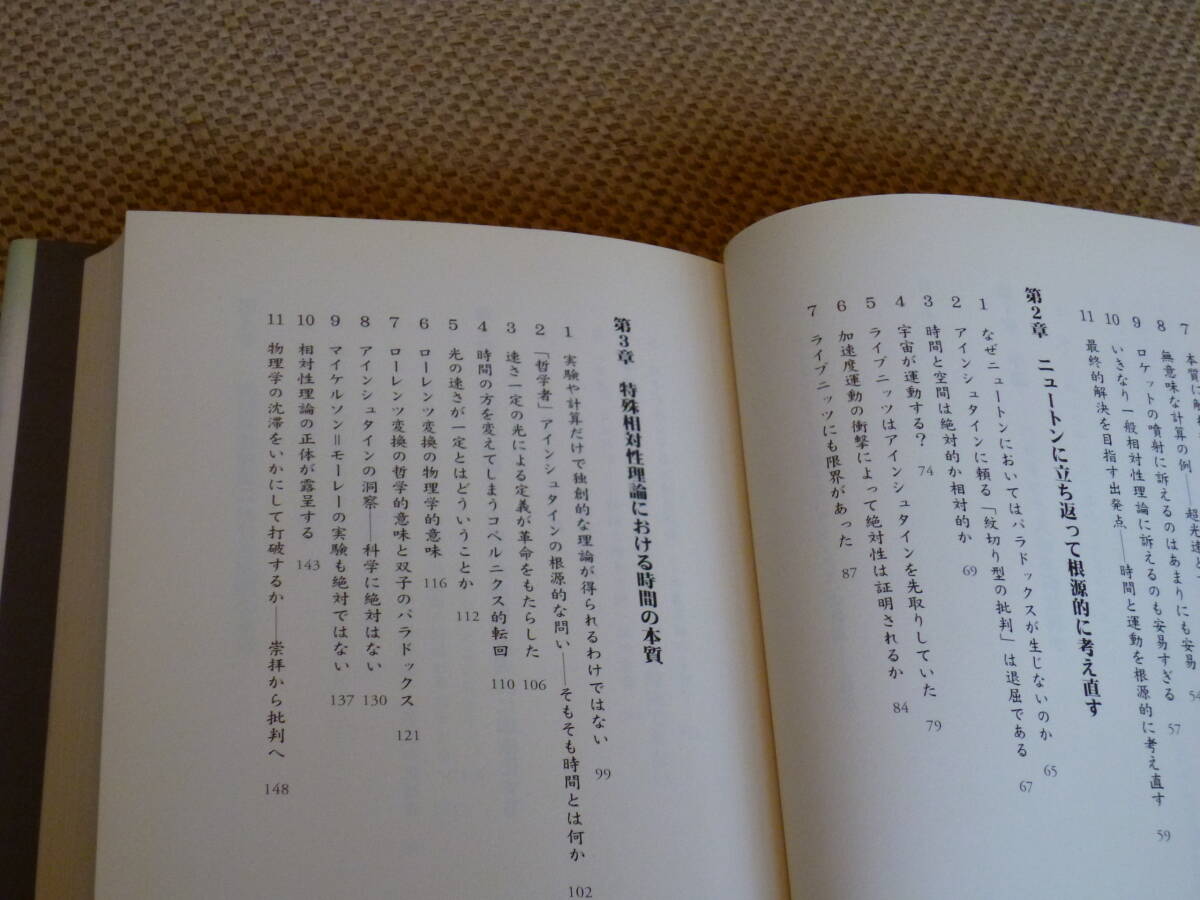 本質に
無意味な計算の例――超光速と
ロケットの噴射に訴えるのはあまりにも安易 54
9 いきなり一般相対性理論に訴えるのも安易すぎる 57
11 最終的解決を目指す出発点――時間と運動を根源的に考え直す 59
第2章 ニュートンに立ち返って根源的に考え直す
1 なぜニュートンにおいてはパラドックスが生じないのか 65
2 アインシュタインに頼る「紋切り型の批判」は退屈である 67
3 時間と空間は絶対的か相対的か 69
4 宇宙が運動する？ 74
5 ライプニッツはアインシュタインを先取りしていた 79
6 加速度運動の衝撃によって絶対性は証明されるか 84
7 ライプニッツにも限界があった 87
第3章 特殊相対性理論における時間の本質
1 実験や計算だけで独創的な理論が得られるわけではない 99
2 「哲学者」アインシュタインの根源的な問い――そもそも時間とは何か 102
3 速さ一定の光による定義が革命をもたらした 106
4 時間の方を変えてしまうコペルニクス的転回 110
5 光の速さが一定とはどういうことか 112
6 ローレンツ変換の物理学的意味 116
7 ローレンツ変換の哲学的意味と双子のパラドックス 121
8 アインシュタインの洞察――科学に絶対はない 130
9 マイケルソン＝モーレーの実験も絶対ではない 137
10 相対性理論の正体が露呈する 143
11 物理学の沈滞をいかにして打破するか――崇拝から批判へ 148